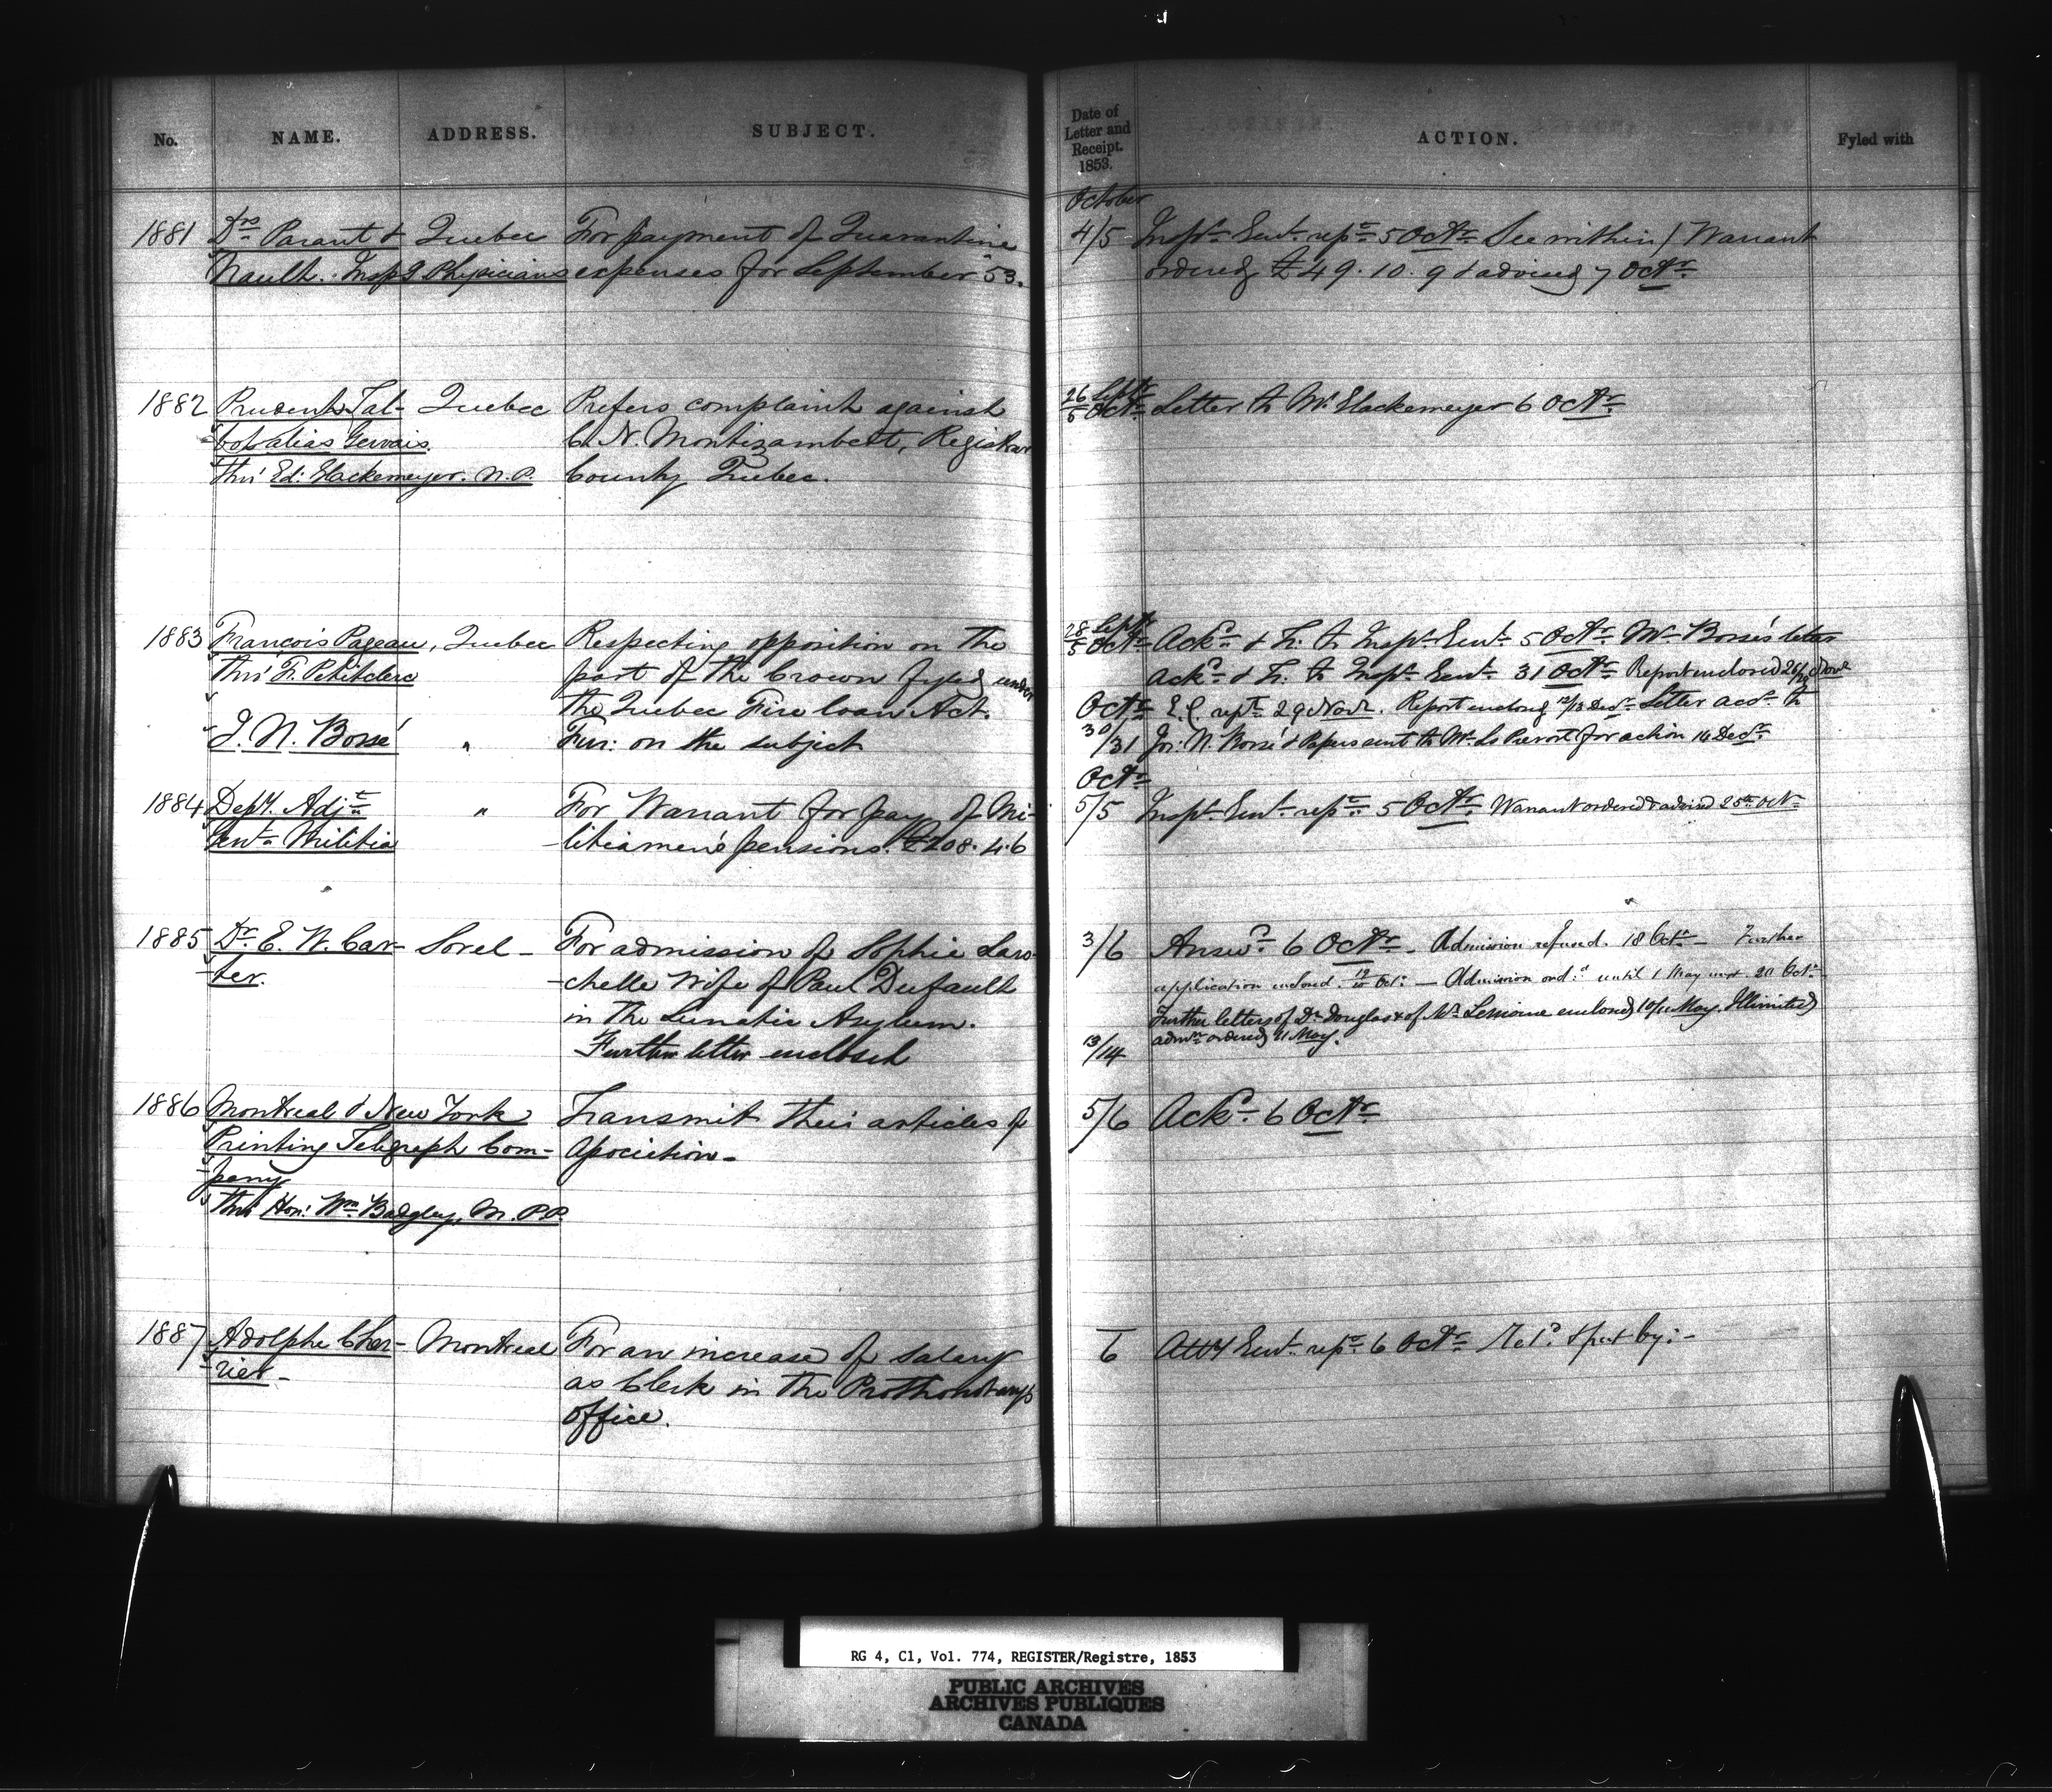 No. NAME. ADDRESS. SUBJECT.
Date of Letter and Receipt. 1853. ACTION. Fyled with
October
1881 Drs Parant & Quebec For payment of Quarantine
Nault. Insp'g Physicians expenses for September '53.
4/5 Inspr Genl repd 5 Octr See within / Warrant
ordered £49. 10. 9 & advised 7 Octr
1882 Prudent Tal- Quebec Prefers complaint against
bot alias Gervais. C. N. Montizambert, Registrar
thro' Ed: Glackemeyer. N.P. County Quebec.
26 Septr
5 Octr Letter to Mr Glackemeyer 6 Octr
1883 Francois Pageau, Quebec Respecting opposition on the
thro' F. Petitclerc part of the Crown fyled under
the Quebec Fire loan Act.
J. N. Bossé " Fur: on the subject
28 Septr
5 Octr Ackd & Tr. to Inspr Genl 5 Octr Mr Bossé's letter
Ackd & Tr. to Inspr Genl 31 Octr Report enclosed 26/28 Novr
Octr E. C. rept 29 Novr. Report enclosg 12/13 Decr Letter accg to
30/31 Jos: N. Bossé & Papers sent to Mr Ls Prevost for action 14 Decr
Octr
1884 Depy. Adjt " For Warrant for pay of Mi-
Genl Militia -litiamen's pensions. £208. 4. 6
5/5 Inspr Genl repd 5 Octr. Warrant ordered & advised 25th Octr
1885 Dr E. W. Car- Sorel - For admission of Sophie Laro-
-ter. -chelle Wife of Paul Dufault
in the Lunatic Asylum.
Further letter enclosed
3/6 Answd 6 Octr - Admission refused. 18 Octr - Further
application enclosed. Octr - Admission ordd until 1 May next. 20 Octr
Further letters of Dr Douglas & of Mr Lemoine enclosed 10/11 May. Illimited
13/14 admn ordered 11 May.
1886 Montreal & New York Transmit their articles of
Printing Telegraph Com- Association -
-pany
thro' Hon: Wm Badgley, M.P.P.
5/6 Ackd 6 Octr
1887 Adolphe Cher- Montreal For an increase of salary
-rier - as Clerk in the Prothonotary's
Office.
6 Atty Genl repd 6 Octr Retd & put by: -
RG 4, C1, Vol. 774, REGISTER/Registre, 1853
PUBLIC ARCHIVES
ARCHIVES PUBLIQUES
CANADA